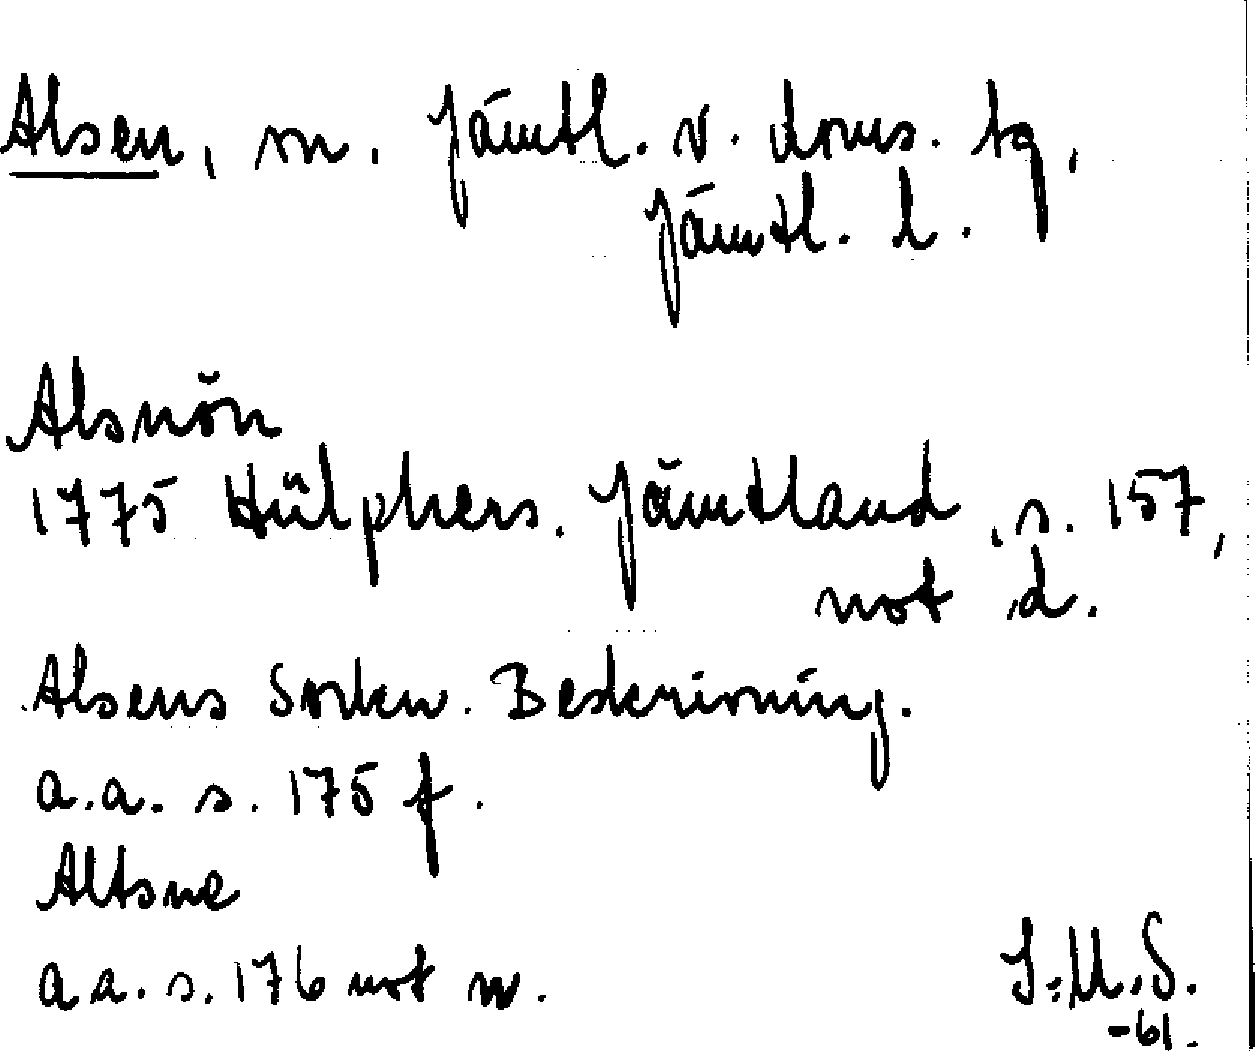 Alsen, sn. Jämtl. v. doms. tg,
Jämtl. l.
Alsnön
1775 Hülphers. Jämtland, s. 157,
not d.
Alsens Sockn. Beskrivning.
a.a. s. 175 f.
Altsne
a.a. s. 176 not
-61.